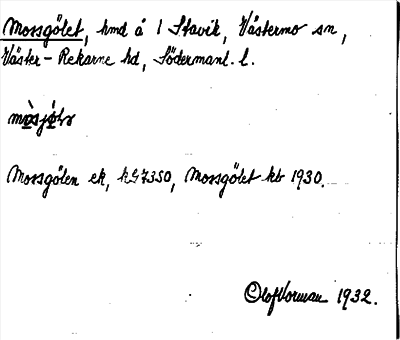 Mossgölet, hmd å 1 Stavik, Västermo sn,
Väster-Rekarne hd, Södermanl. l.
Mossgölen ek, h57350, Mossgölet kb 1930.
Olof Vorman 1932.